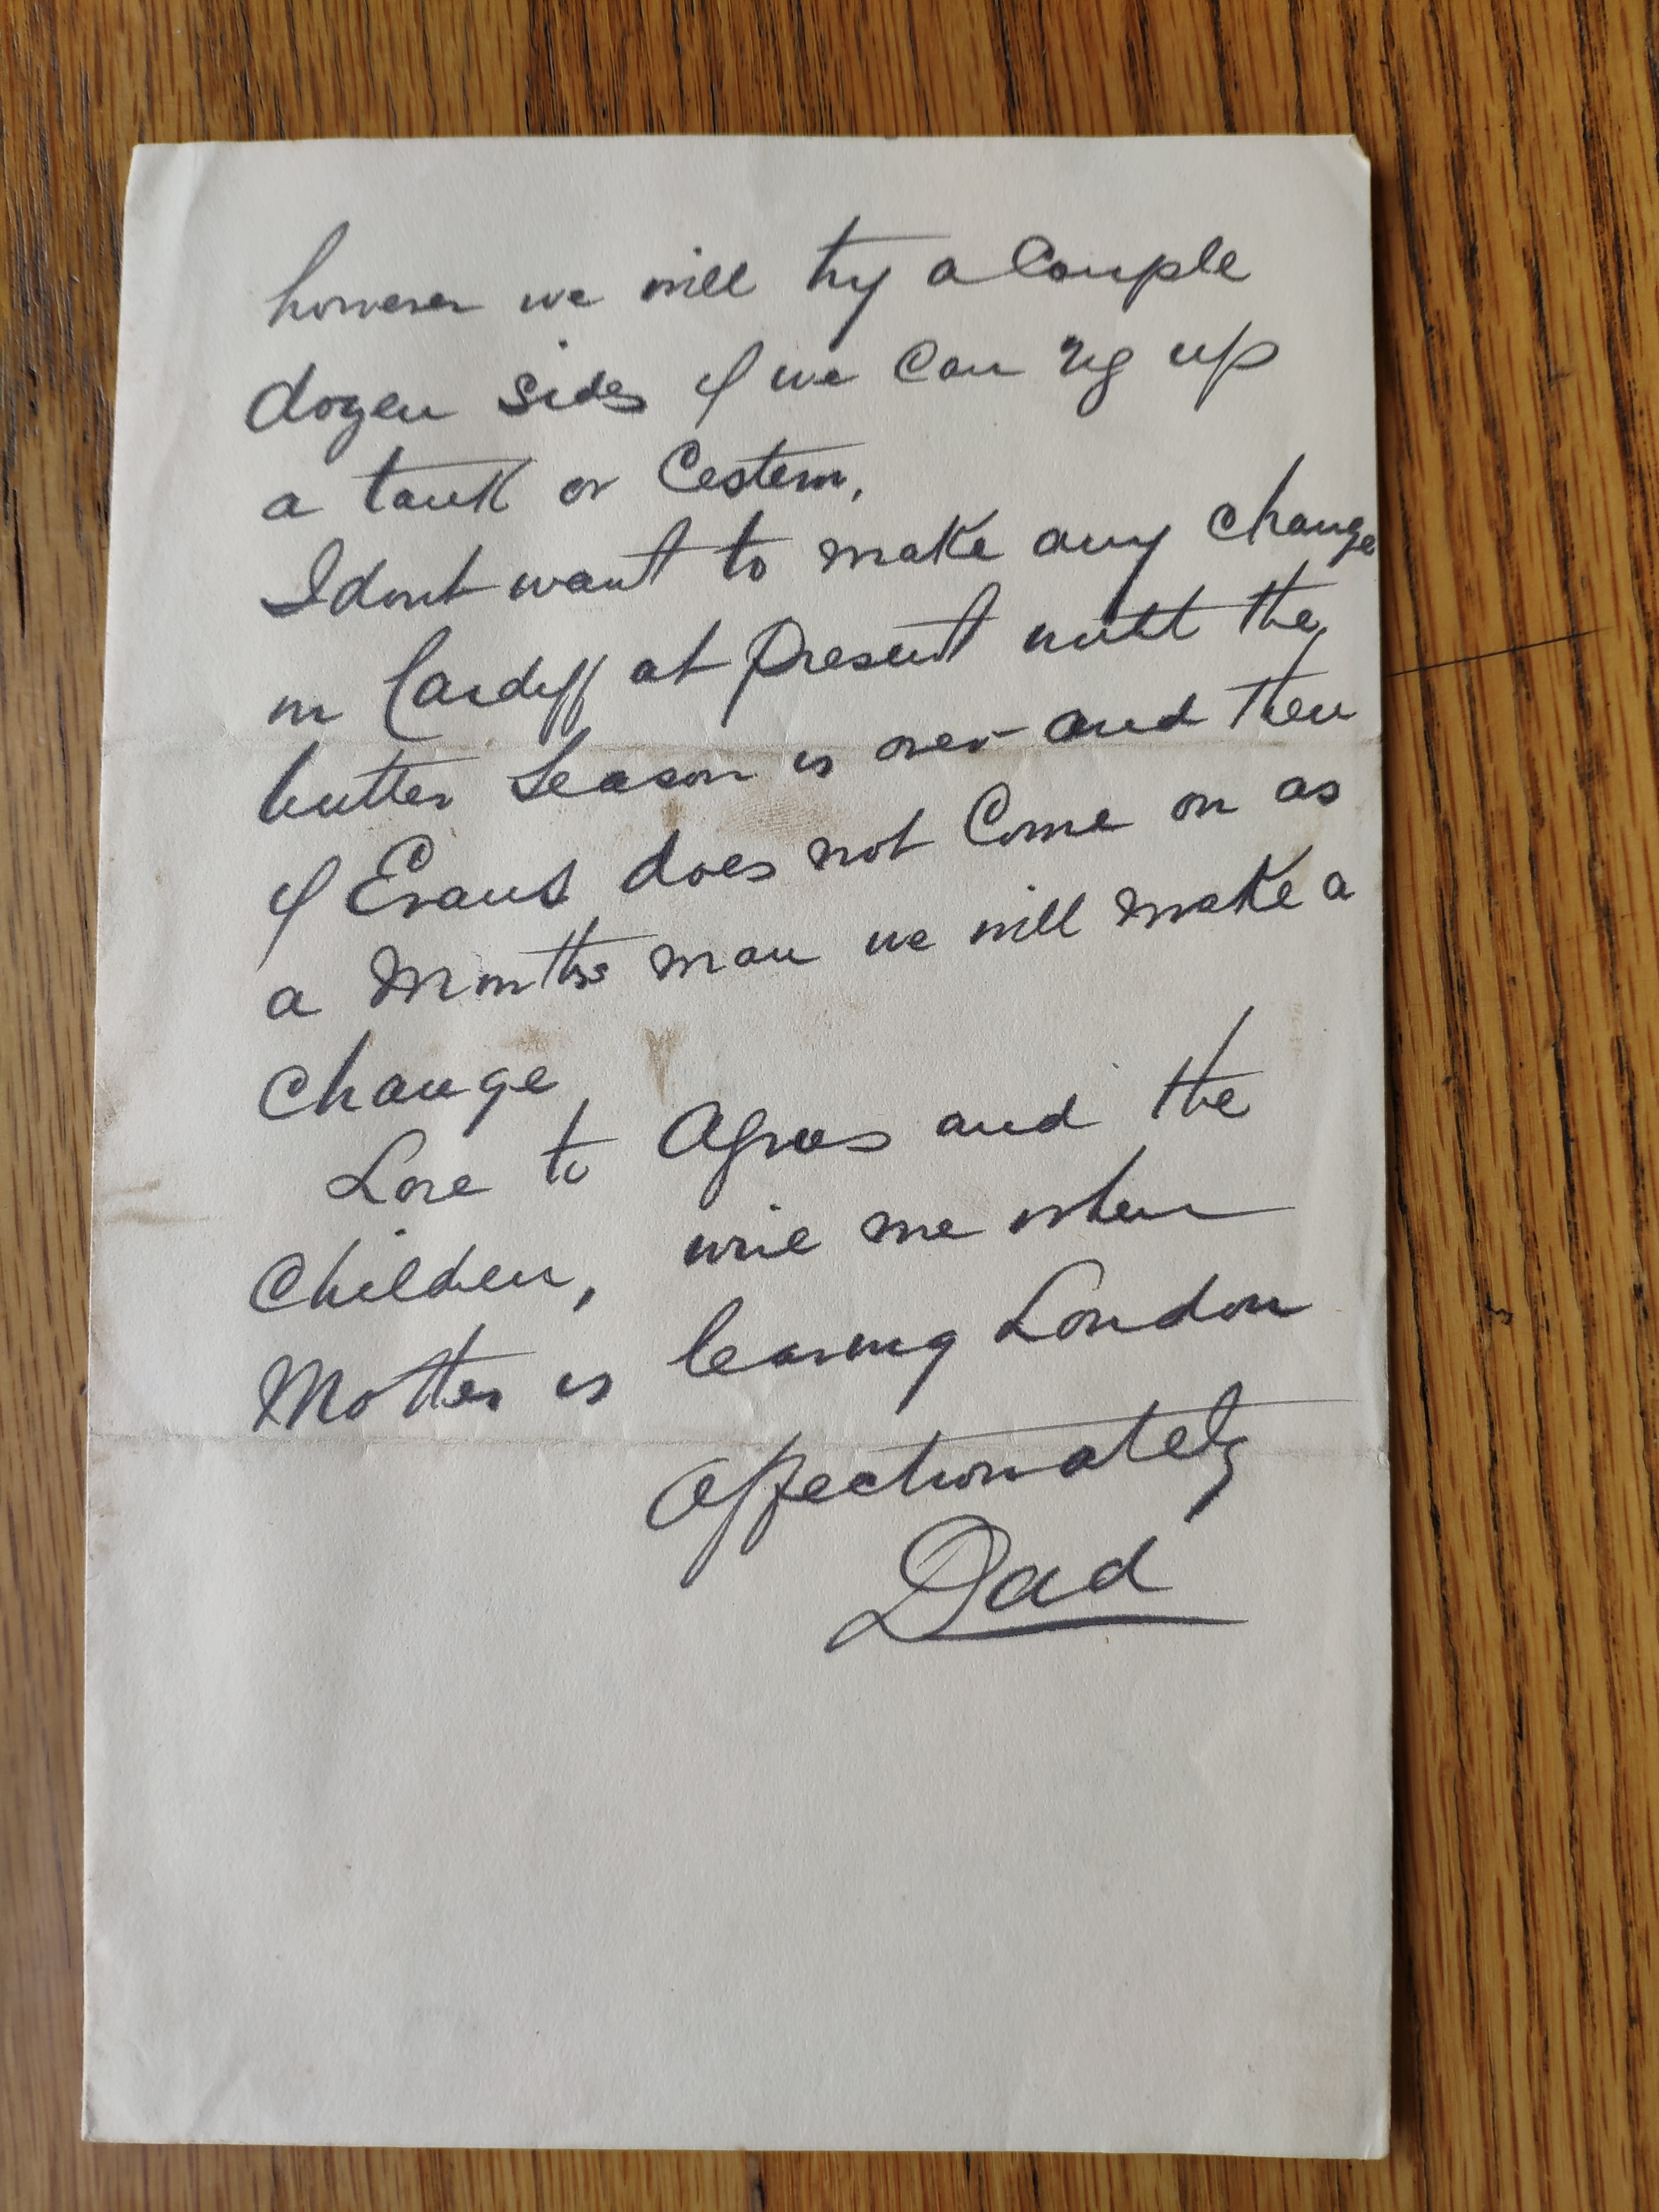 however we will try a Couple
dozen Sides if we Can rig up
a tank or Cestern,
I dont want to make any Change
in Cardiff at Present until the
butter Season is over and then
if Evans does not Come on as
a Months man we will make a
Change
Love to Agnes and the
Children, wire me when
Mother is leaving London
Affectionately
Dad